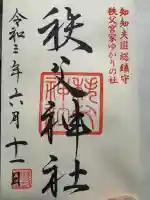 知知夫国総鎮守
秩父宮家ゆかりの社
秩父神社
令和三年六月十一日